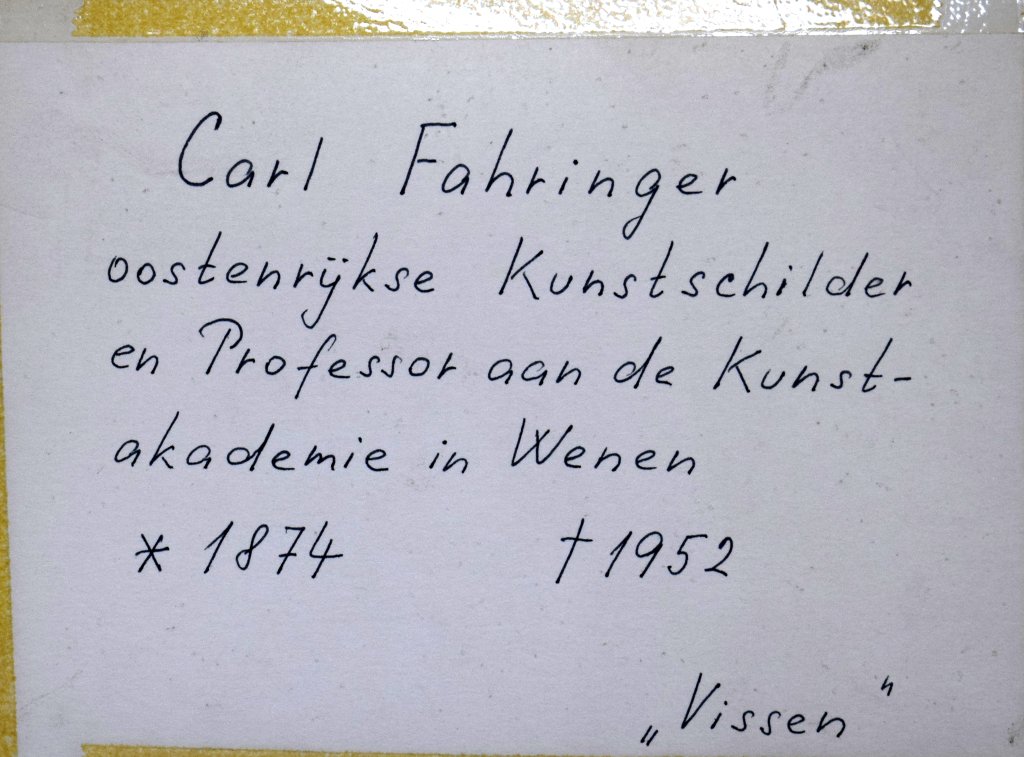 Carl Fahringer
oostenrÿkse Kunstschilder
en Professor aan de Kunst-
akademie in Wenen
* 1874 † 1952
„Vissen"